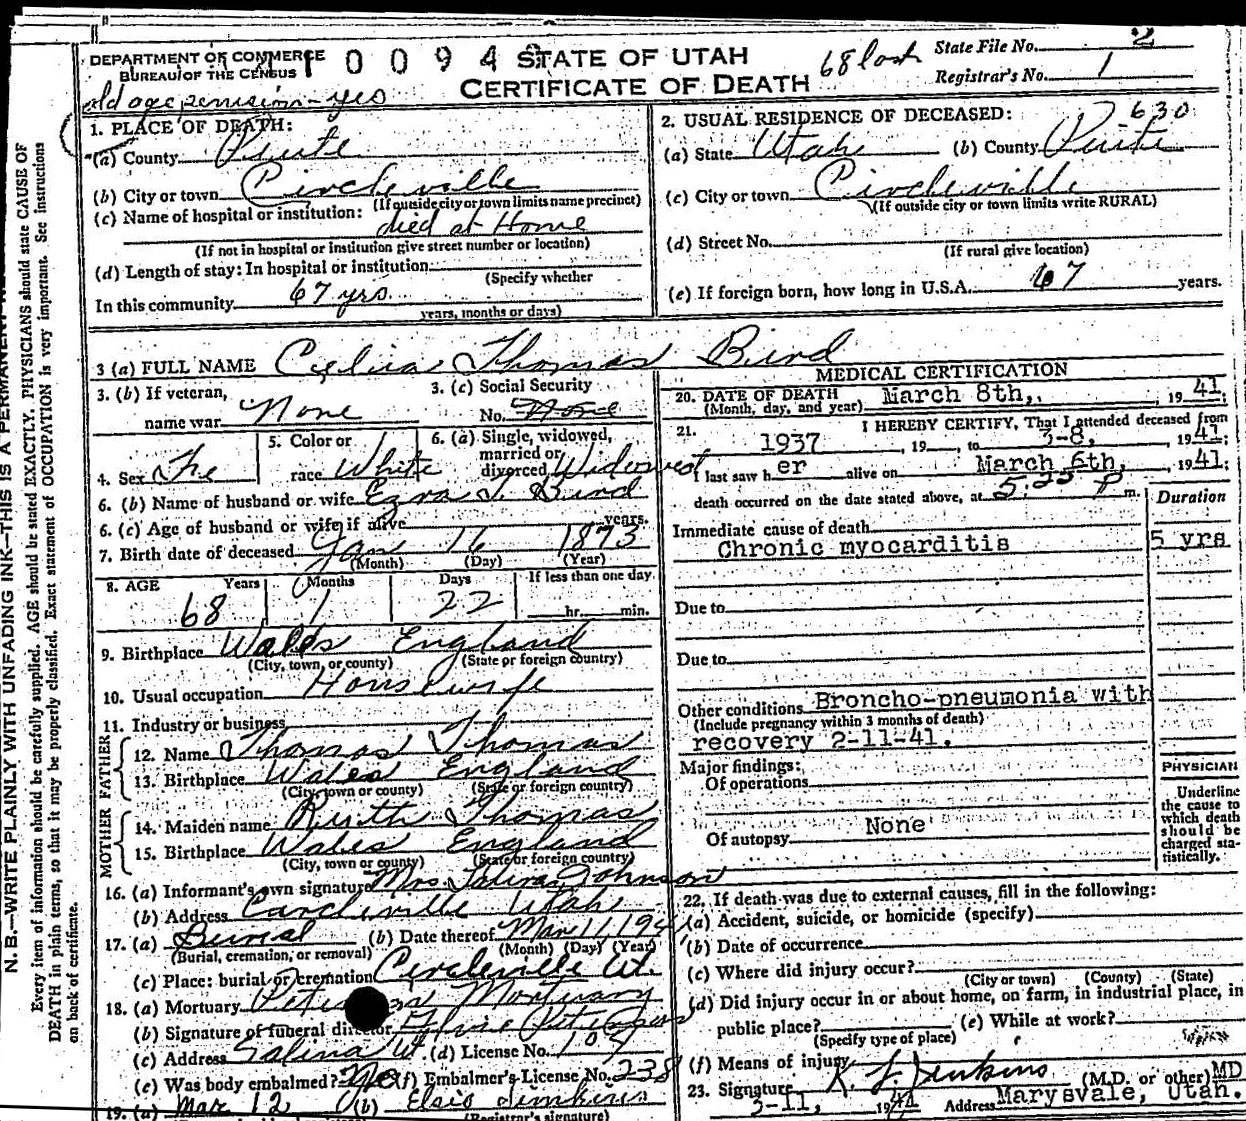 DEPARTMENT OF COMMERCE
BUREAU OF THE CENSUS
0 0 9 4
STATE OF UTAH
CERTIFICATE OF DEATH
State File No. 2
Registrar's No. 1
old age pension - yes
630
1. PLACE OF DEATH:
(a) County Piute
(b) City or town Circleville
(If outside city or town limits name precinct)
(c) Name of hospital or institution: died at Home
(If not in hospital or institution give street number or location)
(d) Length of stay: In hospital or institution
(Specify whether
In this community 67 yrs.
years, months or days)
2. USUAL RESIDENCE OF DECEASED:
(a) State Utah (b) County Piute
(c) City or town Circleville
(If outside city or town limits write RURAL)
(d) Street No.
(If rural give location)
(e) If foreign born, how long in U.S.A. 67 years.
3 (a) FULL NAME Thomas Bird
3. (b) If veteran,
name war None
3. (c) Social Security
No. None
4. Sex Fe
5. Color or
race White
6. (a) Single, widowed,
married or
divorced Widowed
6. (b) Name of husband or wife Ezra Bird
6. (c) Age of husband or wife if alive years.
7. Birth date of deceased Jan 16 1873
(Month) (Day) (Year)
8. AGE Years Months Days If less than one day
68 1 22 hr. min.
9. Birthplace Wales England
(City, town, or county) (State or foreign country)
10. Usual occupation Housewife
11. Industry or business
FATHER
12. Name Thomas Thomas
13. Birthplace Wales England
(City, town or county) (State or foreign country)
MOTHER
14. Maiden name Ruth Thomas
15. Birthplace Wales England
(City, town or county) (State or foreign country)
16. (a) Informant's own signature Mrs. Johnson
(b) Address Circleville Utah
17. (a) Burial (b) Date thereof Mar 11, 194
(Burial, cremation, or removal) (Month) (Day) (Year)
(c) Place: burial or cremation Circleville Ut.
18. (a) Mortuary Mortuary
(b) Signature of funeral director
(c) Address Salina Ut. (d) License No. 109
(e) Was body embalmed? (f) Embalmer's License No. 238
19. (a) Mar 12 (b) Elsie Simkins
(Registrar's signature)
MEDICAL CERTIFICATION
20. DATE OF DEATH March 8th, 1941;
(Month, day, and year)
21. I HEREBY CERTIFY, That I attended deceased from
1937, 19 , to 3-8, 1941;
I last saw her alive on March 6th, 1941;
death occurred on the date stated above, at 5:25 P m.
Duration
Immediate cause of death
Chronic myocarditis 5 yrs
Due to
Due to
Other conditions Broncho-pneumonia with
(Include pregnancy within 3 months of death)
recovery 2-11-41.
Major findings:
Of operations
Of autopsy None
PHYSICIAN
Underline
the cause to
which death
should be
charged sta-
tistically.
22. If death was due to external causes, fill in the following:
(a) Accident, suicide, or homicide (specify)
(b) Date of occurrence
(c) Where did injury occur?
(City or town) (County) (State)
(d) Did injury occur in or about home, on farm, in industrial place, in
public place? (e) While at work?
(Specify type of place)
(f) Means of injury
23. Signature Jenkins (M.D. or other) MD
3-11, 1941 Address Marysvale, Utah.
N. B.—WRITE PLAINLY WITH UNFADING INK—THIS IS A PERMANENT
Every item of information should be carefully supplied. AGE should be stated EXACTLY. PHYSICIANS should state CAUSE OF
DEATH in plain terms, so that it may be properly classified. Exact statement of OCCUPATION is very important. See instructions
on back of certificate.